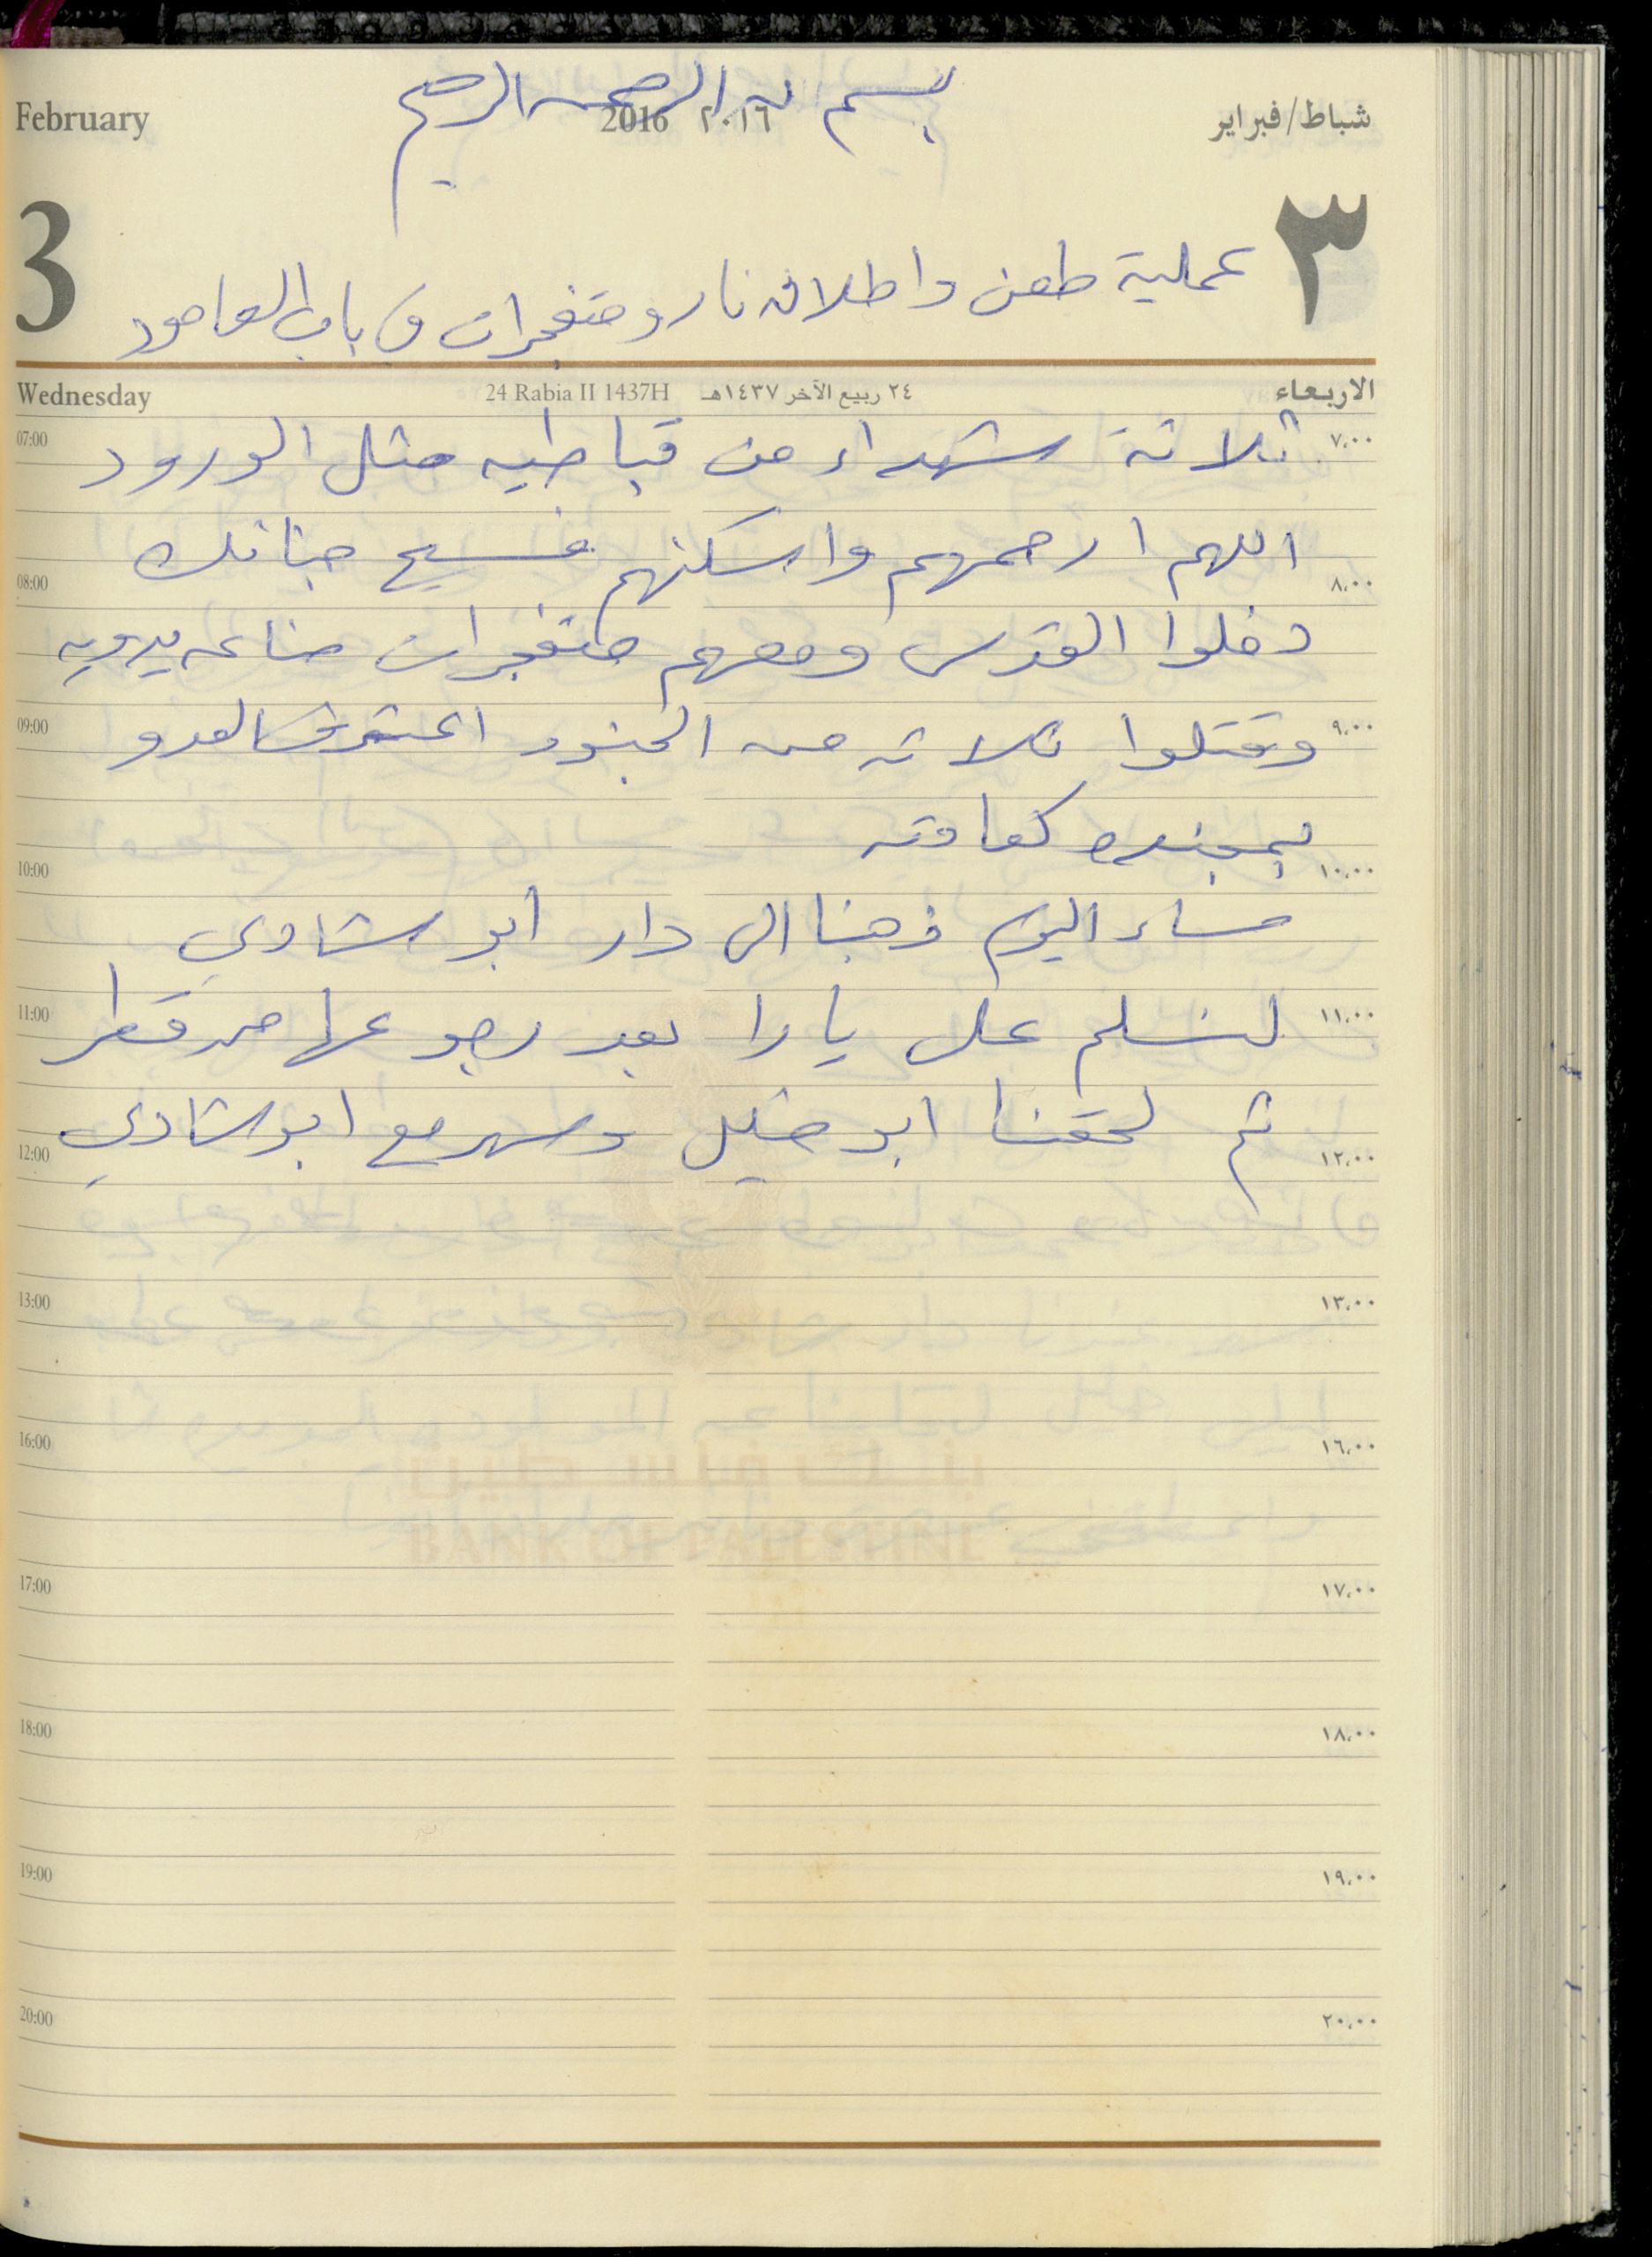 بسم الله الرحمن الرحيم
February 2016 ٢٠١٦ شباط/فبراير
3 ٣
عملية طعن واطلاق نار ومتفجرات في باب العامود
Wednesday 24 Rabia II 1437H ٢٤ ربيع الآخر ١٤٣٧هـ الاربعاء
07:00 ثلاثة شهداء من قباطيه مثل الورود ٧,٠٠
اللهم ارحمهم واسكنهم فسيح جناتك
08:00 ٨,٠٠
دخلوا القدس ومعهم متفجرات صناعه يدويه
09:00 وقتلوا ثلاثه من الجنود اعترف العدو ٩,٠٠
بمجنده كعادته
10:00 ١٠,٠٠
مساء اليوم ذهبنا الى دار ابو شادي
11:00 لنسلم على يارا بعد رجوعها من قطر ١١,٠٠
ثم لحقنا ابو خليل وسهر مع ابو شادي
12:00 ١٢,٠٠
13:00 ١٣,٠٠
16:00 ١٦,٠٠
بنك فلسطين
BANK OF PALESTINE
17:00 ١٧,٠٠
18:00 ١٨,٠٠
19:00 ١٩,٠٠
20:00 ٢٠,٠٠